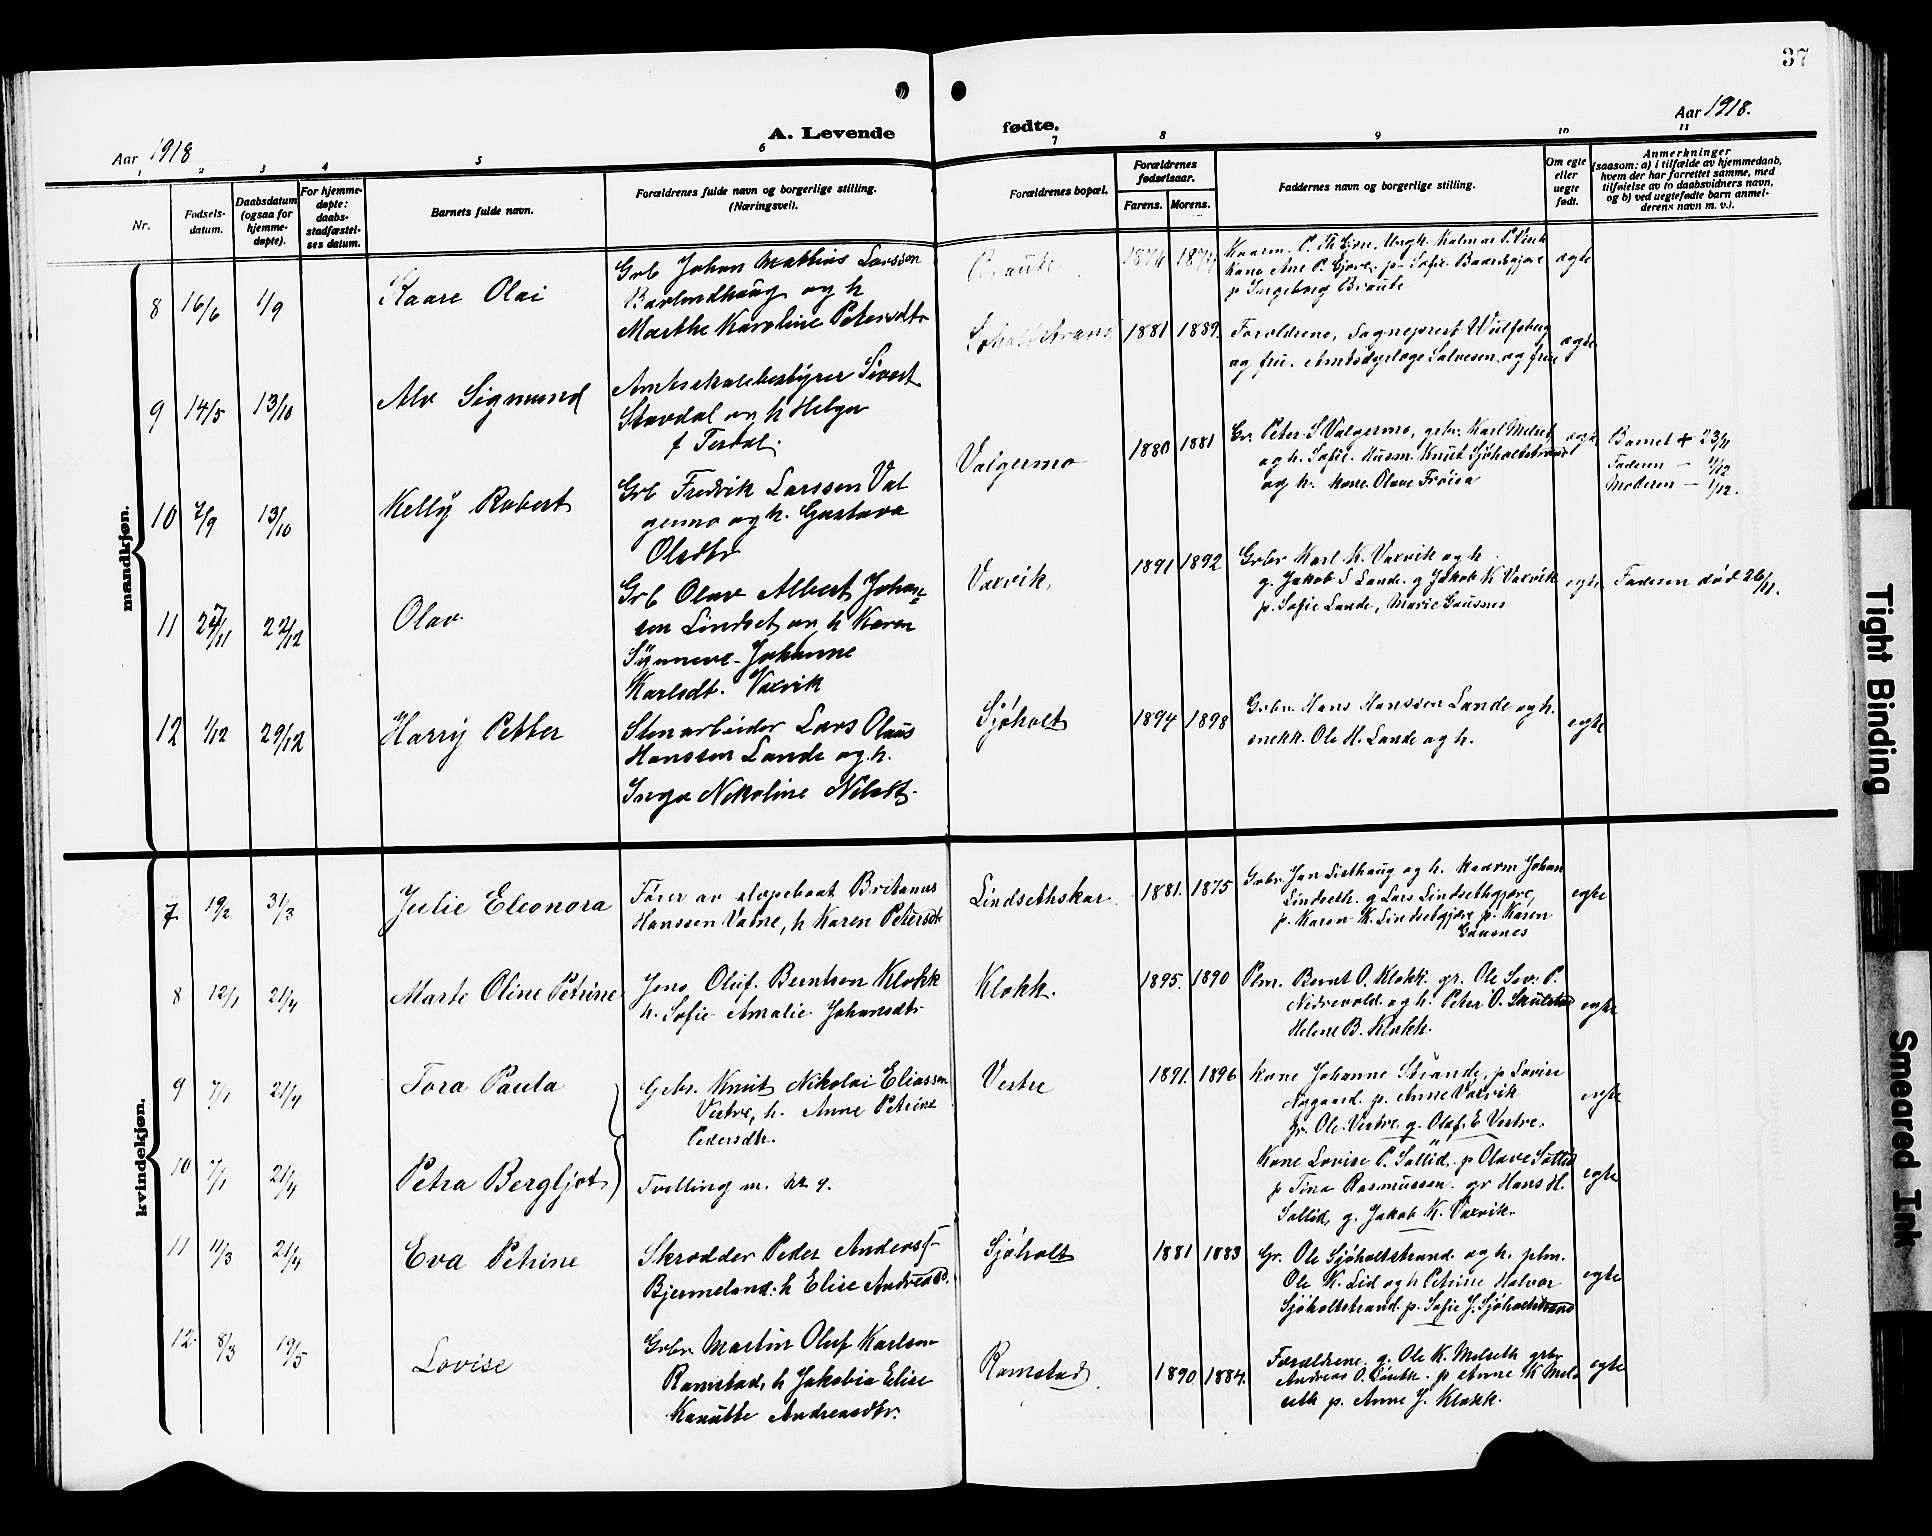 37
Aar 1918
A. Levende fødte.
Aar 1918.
1 2 3 4 5 6 7 8 9 10 11
Nr.
Fødsels-
datum.
Daabsdatum
(ogsaa for
hjemme-
døpte).
For hjemme-
døpte:
daabs-
stadfæstel-
ses datum.
Barnets fulde navn.
Forældrenes fulde navn og borgerlige stilling.
(Næringsvei).
Forældrenes bopæl.
Forældrenes
fødselsaar.
Farens. Morens.
Faddernes navn og borgerlige stilling.
Om egte
eller
uegte
født.
Anmerkninger
(saasom: a) i tilfælde av hjemmedaab,
hvem der har forrettet samme, med
tilføielse av to daabsvidners navn,
og b) ved uegtefødte barn anmel-
derens navn m. v.).
mandkjøn.
8 16/6 1/9 Kaare Olai
Grb Johan Mathias Larssen
og h
Marthe Karoline Petersdtr
Braute
Kaarm. P. Th Gjøre. Ungk. Kalmar P.
Kone Ane P. Gjøre. p. Sofie
p Ingeborg Braute
egte
9 14/5 13/10 Alv Sigmund
Amtsskolebestyrer Sivert
Stavdal og h Helga
f
Sjøholtstrand
1881 1889.
Forældrene, Sogneprest Wulfsberg
og frue. Amtsdyrlæge Salvesen og frue
egte
10 7/9 13/10 Kelly Robert
Grb Fredrik Larssen Val
germo og h. Gustava
Olsdtr
Valgermo
1880 1881
Gr. Peter S Valgermo, grbr. Karl Melset
og h. Sofie. Husm. Knut Sjøholtstrand
og h. kone Olave Frøisa
egte
Barnet + 23/11
Faderen –
Moderen – 1/12.
11 27/11 22/12 Olav
Grb Olav Albert Johan=
sen Lindset og h Karen
Synneve Johanne
Karlsdt. Vaxvik
Vaxvik.
1891 1892
Grbr Karl K. Vaxvik og h
g. Jakob S Lande. g Jakob K Vaxvik
p. Sofie Lande, Marie Gausnes
egte
Faderen død 26/11.
12 1/12 29/12 Harry Petter
Stenarbeider Lars Olaus
Hanssen Lande og h.
Inga Nikoline Nilsdt.
Sjøholt
1894 1898
Grbr. Hans Hanssen Lande og h.
snekk. Ole H. Lande og h.
egte
kvindekjøn.
7 19/2 31/3 Julie Eleonora
Fører av slæpebaat Britanus
Hanssen Vatne, h Karen Petersdt
Lindsethskar.
1881. 1875
Grbr. Jon Liethaug og h. kaarm Johan
Lindseth. g Lars Lindsethgjøre,
p. Karen K. Lindsetgjøre p. Karen
Gausnes
egte
8 12/1 21/4 Marte Oline Petrine
Jens Oluf. Berntsen Klokk
h. Sofie Amalie Johansdtr
Klokk.
1895. 1890
Plm. Bernt O. Klokk. gr. Ole Sev. P.
Nedrevold. og h. Peter O. Skulstad
Helene B. Klokk.
egte
9 7/1 21/4 Tora Paula
Grbr. Knut Nikolai Eliassen
Vestre, h. Anne Petrine
Pedersdtr.
Vestre
1891. 1896
Kone Johanne Strande, p Lovise
Nygaard. p. Anne Vaxvik
gr. Ole Vestre. g. Olaf. E Vestre.
egte
10 7/1 21/4 Petra Bergljot
Tvilling m. nr 9.
Kone Lovise P. Sollid. p Olave Sollid
p Tina Rasmussen. gr Hans H.
Sollid, g. Jakob K. Vaxvik.
egte
11 11/3 21/4 Eva Petrine
Skrædder Peder Anders f.
Bjermeland. h Elise Andreasd.
Sjøholt
1881 1883
Gr. Ole Sjøholtstrand og h. plm.
Ole K. Lid og h Petrine Halvor
Sjøholtstrand p. Sofie J. Sjøholtstrand
egte
12. 8/3 19/5 Lovise
Grbr Martin Oluf Karlsen
Ramstad, h Jakobia Elise
Kanutte Andreasdtr.
Ramstad
1890 1884.
Forældrene. g. Ole K. Melseth grbr
Andreas O. p Anne K Mel
seth p. Anne J. Klokk.
egte
Tight Binding
Smeared Ink